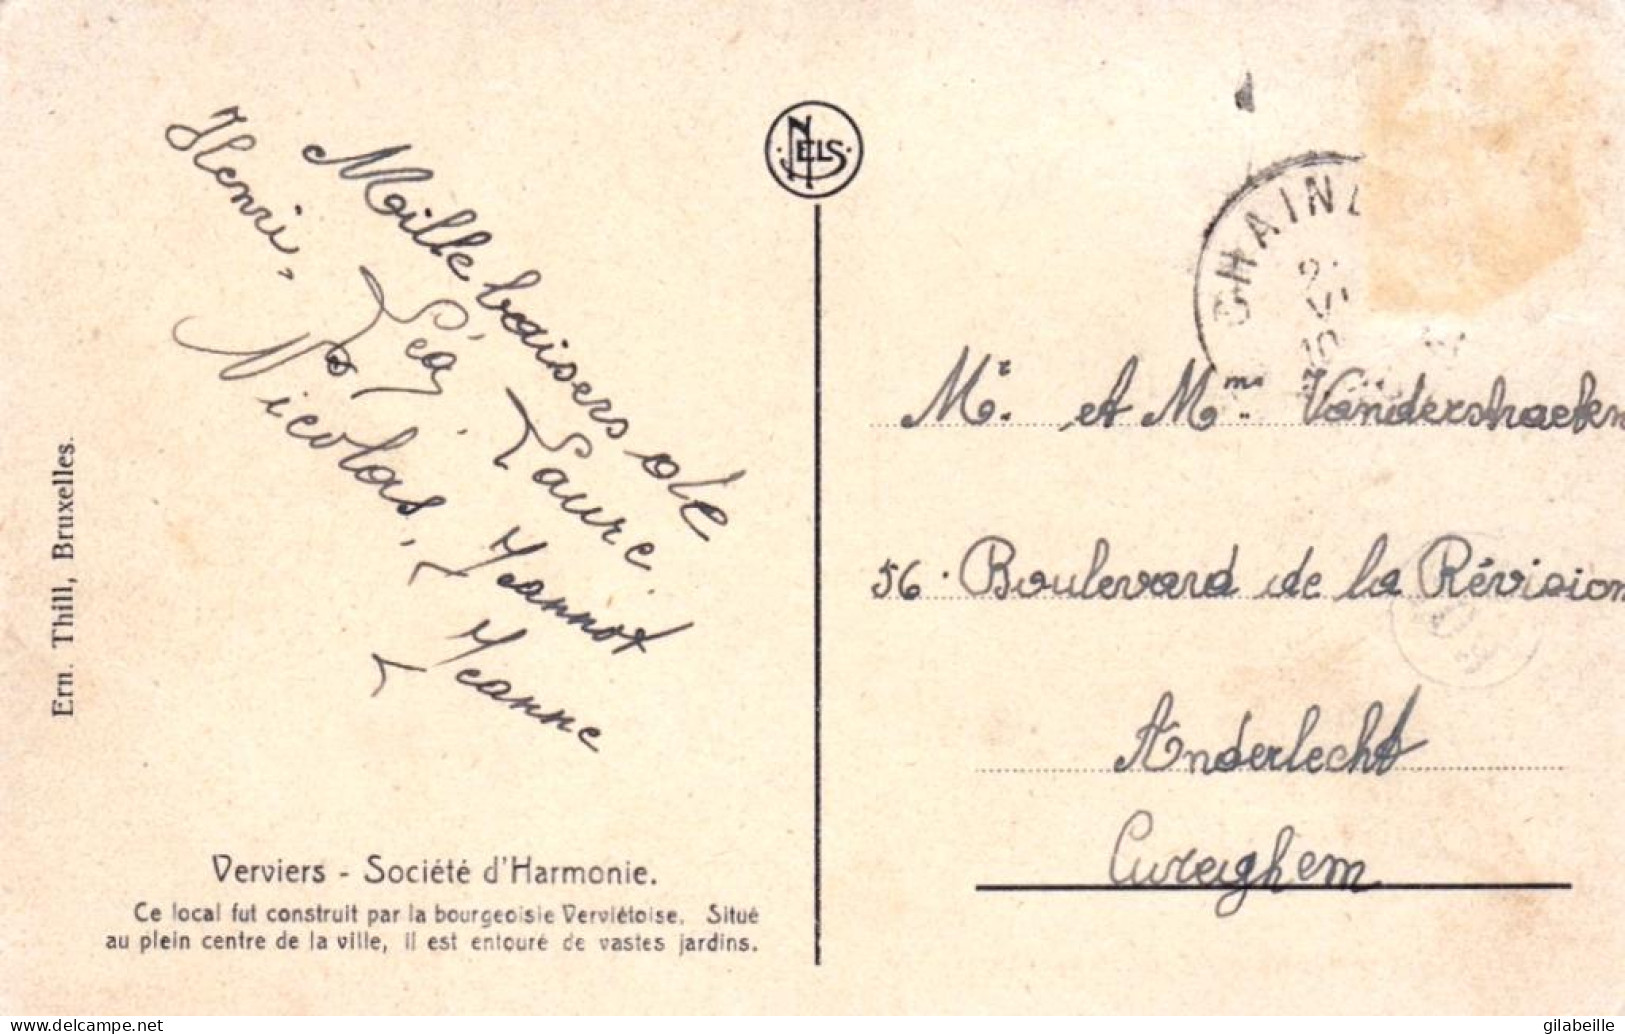 Maille baisers de
Henri, Léa, Laure
Nicolas, Jeannot
Jeanne
Ern. Thill, Bruxelles.
NELS
Verviers - Société d'Harmonie.
Ce local fut construit par la bourgeoisie Verviétoise. Situé
au plein centre de la ville, il est entouré de vastes jardins.
CHAINE
Mr. et Mme. Vanderstraeten
56. Boulevard de la Révision
Anderlecht
Cureghem
www.delcampe.net
gilabeille